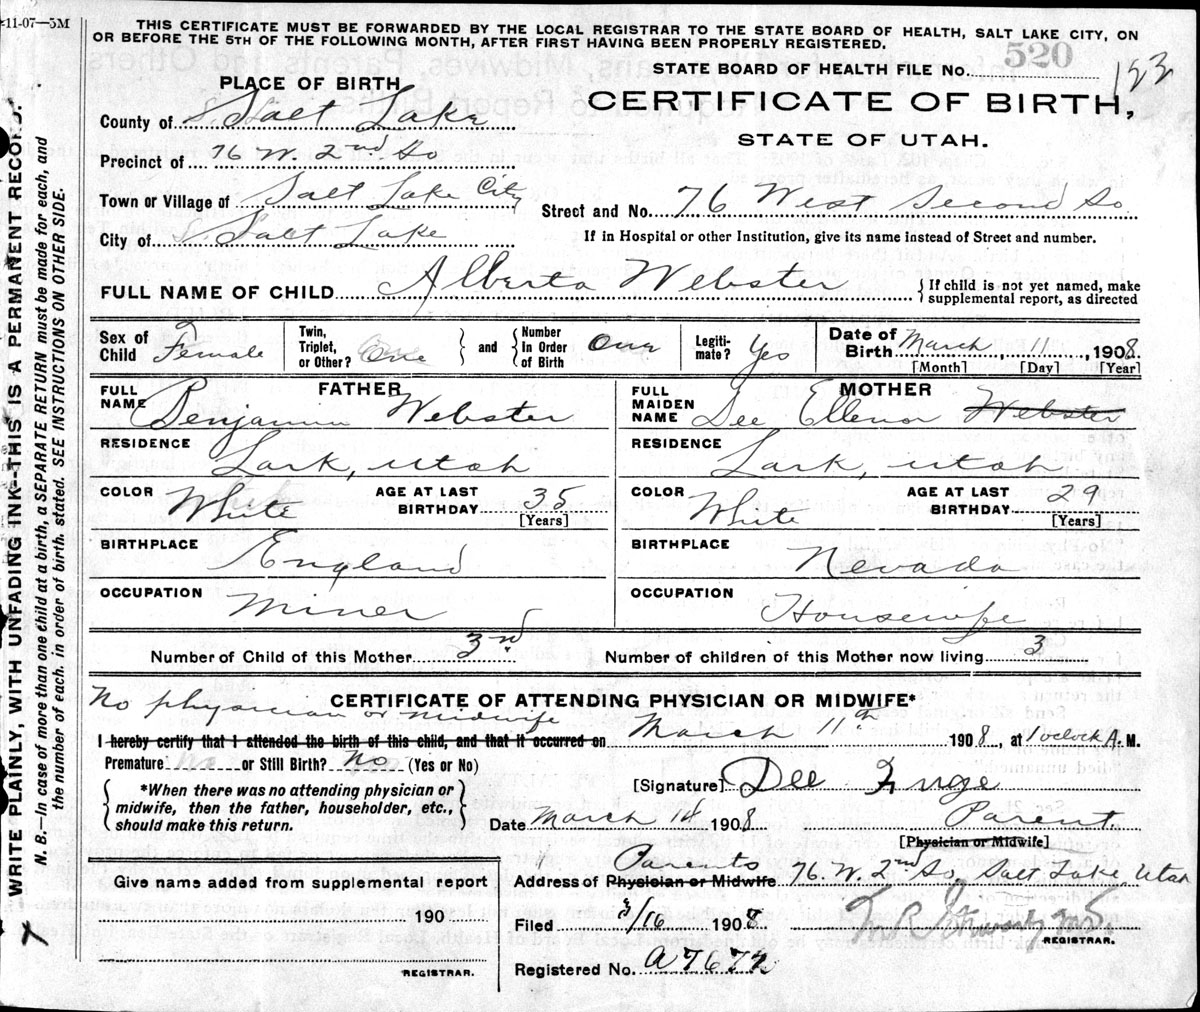 *11-07—5M
THIS CERTIFICATE MUST BE FORWARDED BY THE LOCAL REGISTRAR TO THE STATE BOARD OF HEALTH, SALT LAKE CITY, ON
OR BEFORE THE 5TH OF THE FOLLOWING MONTH, AFTER FIRST HAVING BEEN PROPERLY REGISTERED.
STATE BOARD OF HEALTH FILE No. 520
133
PLACE OF BIRTH
CERTIFICATE OF BIRTH,
STATE OF UTAH.
County of Salt Lake
Precinct of 76 W. 2nd So
Town or Village of Salt Lake City
Street and No. 76 West Second So.
City of Salt Lake
If in Hospital or other Institution, give its name instead of Street and number.
FULL NAME OF CHILD Alberta Webster
If child is not yet named, make
supplemental report, as directed
Sex of Child Female
Twin, Triplet, or Other? One
and
Number In Order of Birth One
Legiti-mate? Yes
Date of Birth March, 11, 1908.
[Month] [Day] [Year]
FATHER
FULL NAME Benjamin Webster
RESIDENCE Lark, Utah
COLOR White
AGE AT LAST BIRTHDAY 35
[Years]
BIRTHPLACE England
OCCUPATION Miner
MOTHER
FULL MAIDEN NAME Dee Ellenor Webster
RESIDENCE Lark, Utah
COLOR White
AGE AT LAST BIRTHDAY 29
[Years]
BIRTHPLACE Nevada
OCCUPATION Housewife
Number of Child of this Mother 3rd
Number of children of this Mother now living 3
CERTIFICATE OF ATTENDING PHYSICIAN OR MIDWIFE*
No physician or midwife
I hereby certify that I attended the birth of this child, and that it occurred on March 11th 1908, at 1 oclock A. M.
Premature No or Still Birth? No (Yes or No)
*When there was no attending physician or
midwife, then the father, householder, etc.,
should make this return.
[Signature] Dee Inge
Date March 14 1908 Parent
[Physician or Midwife]
Parents
Address of Physician or Midwife 76. W. 2nd So, Salt Lake Utah
Give name added from supplemental report
190
REGISTRAR.
Filed 3/16 1908.
REGISTRAR.
Registered No. A7672
WRITE PLAINLY, WITH UNFADING INK—THIS IS A PERMANENT RECORD.
N. B.—In case of more than one child at a birth, a SEPARATE RETURN must be made for each, and
the number of each, in order of birth, stated. SEE INSTRUCTIONS ON OTHER SIDE.